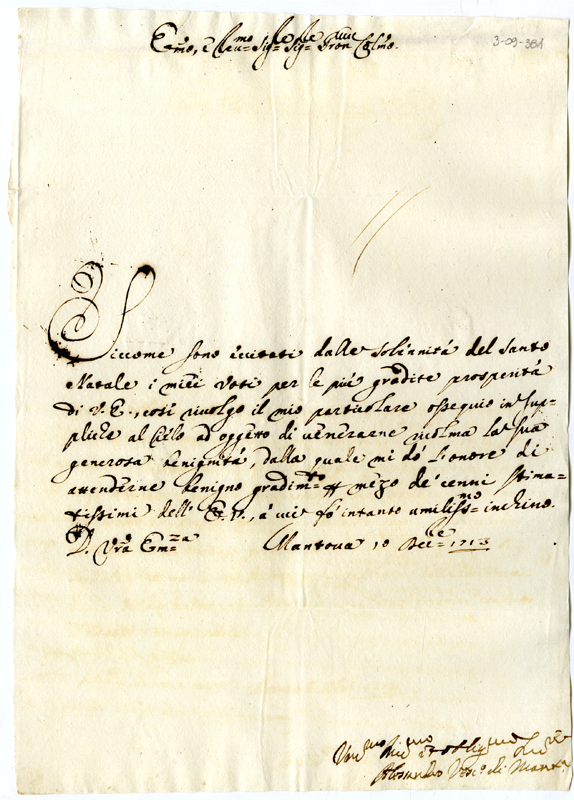 Em͞o, e Reu͞mo Sig:re Sig:re Pron Col͞mo.
3-09-381
Siccome sono eccitati dalle solennità del Santo
Natale i miei voti per le più gradite prosperità
di V. E., così rivolgo il mio particolare ossequio in sup-
pliche al Cielo ad oggetto di venerarne ricolma la sua
generosa benignità, dalla quale mi dò l'onore di
attenderne benigno gradim:to p mezo de' cenni stima-
tissimi dell' E. V., a cui fò intanto umiliss:mo inchino.
D. Vrã Em:za Mantova 10 Dec:re 1713
Alessandro Vesc:o di Mant:a